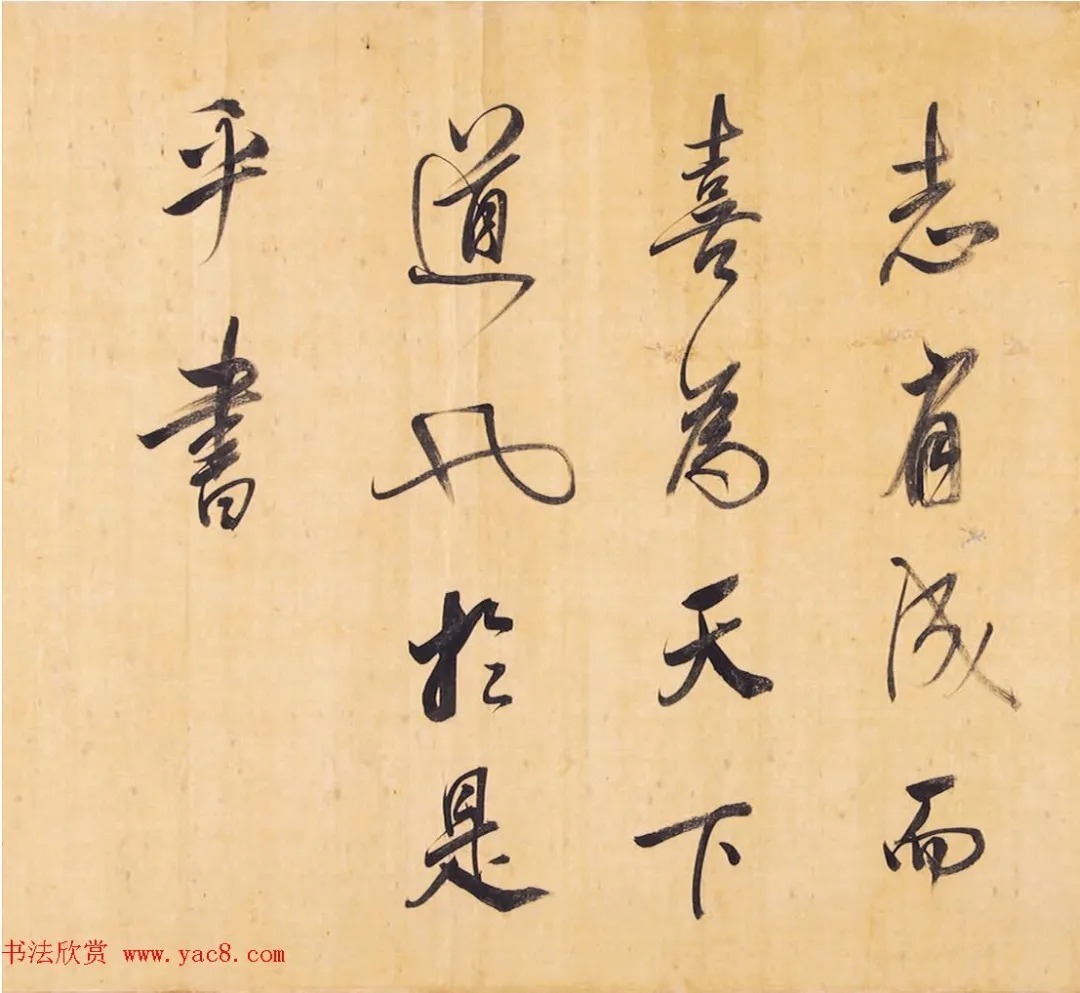 志有成而
喜為天下
道也於是
乎書
书法欣赏 www.yac8.com